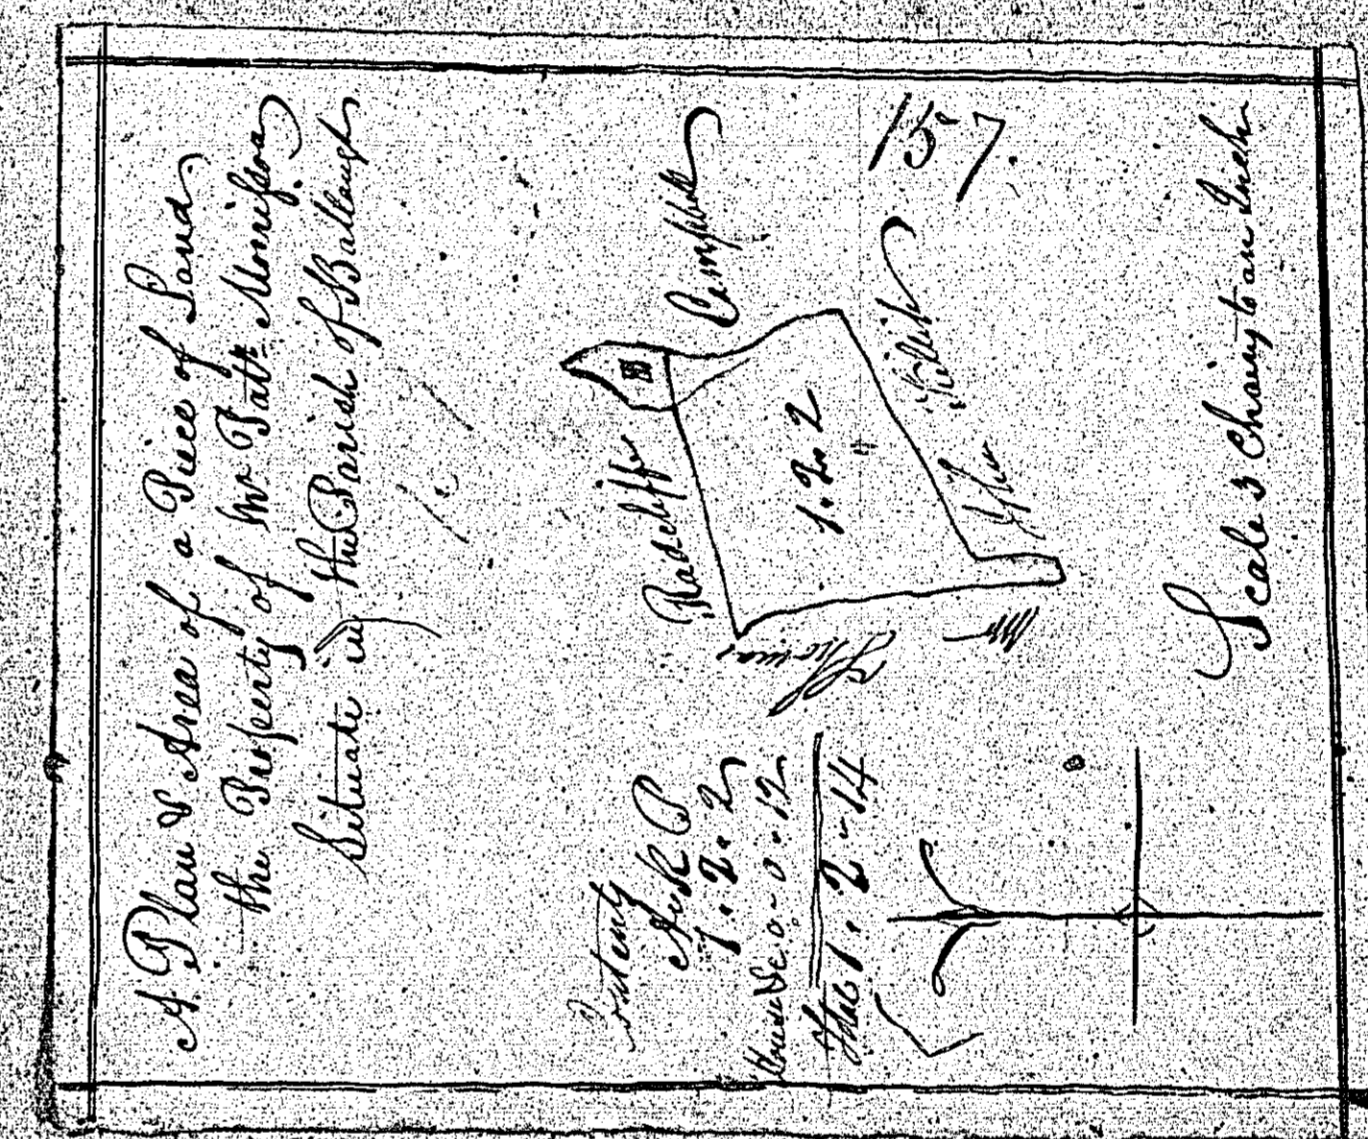 A Plan & Area of a Piece of Land
the Property of Mr Patk Morrison
Situate in the Parish of Ballaugh
Radcliffe
Campbell
1. 2. 2
The
15.7
Contents
A R P
1. 2. 2
House &c 0 - 0 - 12
Total 1. 2 - 14
Scale 3 Chains to an Inch